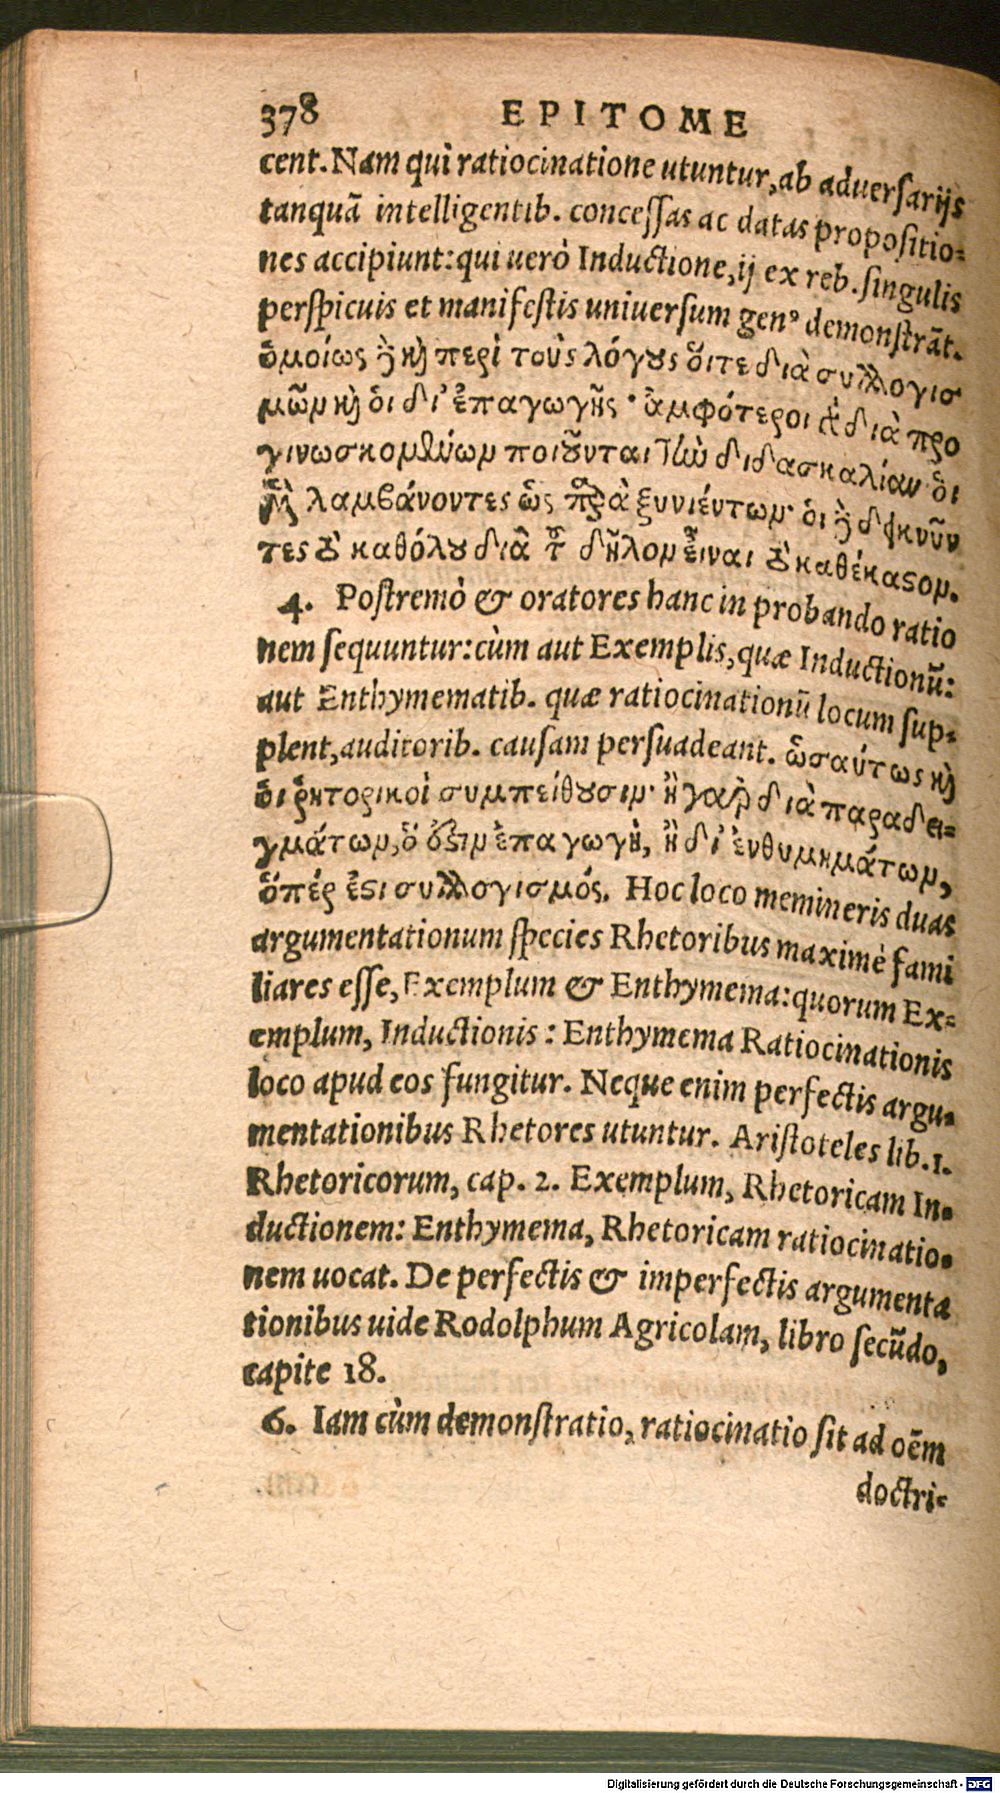 378 EPITOME
cent. Nam qui ratiocinatione utuntur, ab aduersarijs
tanquã intelligentib. concessas ac datas propositio-
nes accipiunt: qui uerò Inductione, ij ex reb. singulis
perspicuis et manifestis uniuersum gen⁹ demonstrãt.
ὁμοίως ἢ κỳ περὶ τοὺς λόγους ὅιτε διὰ συλλογισ
μῶν κỳ ὁι δι' ἐπαγωγῆς· ἀμφότεροι γὰρ διὰ προ
γινωσκομένων ποιοῦνται τὴν διδασκαλίαν· ὁι
μὲν λαμβάνοντες ὡς παρὰ ξυνιέντων· ὁι δὲ δεικνύν
τες τὸ καθόλου διὰ τοῦ δῆλον εἶναι τὸ καθέκαστον.
4. Postremò & oratores hanc in probando ratio
nem sequuntur: cùm aut Exemplis, quæ Inductionũ:
aut Enthymematib. quæ ratiocinationũ locum sup-
plent, auditorib. causam persuadeant. ὡσαύτως κỳ
ὁι ῥητορικοὶ συμπείθουσιν· ἢ γὰρ διὰ παραδει-
γμάτων, ὅ ὅξιν ἐπαγωγὴ, ἢ δι' ἐνθυμημάτων,
ὅπέρ ἐστι συλλογισμός. Hoc loco memineris duas
argumentationum species Rhetoribus maximè fami
liares esse, Exemplum & Enthymema: quorum Ex-
emplum, Inductionis: Enthymema Ratiocinationis
loco apud eos fungitur. Neque enim perfectis argu-
mentationibus Rhetores utuntur. Aristoteles lib. 1.
Rhetoricorum, cap. 2. Exemplum, Rhetoricam In-
ductionem: Enthymema, Rhetoricam ratiocinatio-
nem uocat. De perfectis & imperfectis argumenta
tionibus uide Rodolphum Agricolam, libro secũdo,
capite 18.
6. Iam cùm demonstratio, ratiocinatio sit ad oẽm
doctri-
Digitalisierung gefördert durch die Deutsche Forschungsgemeinschaft - DFG